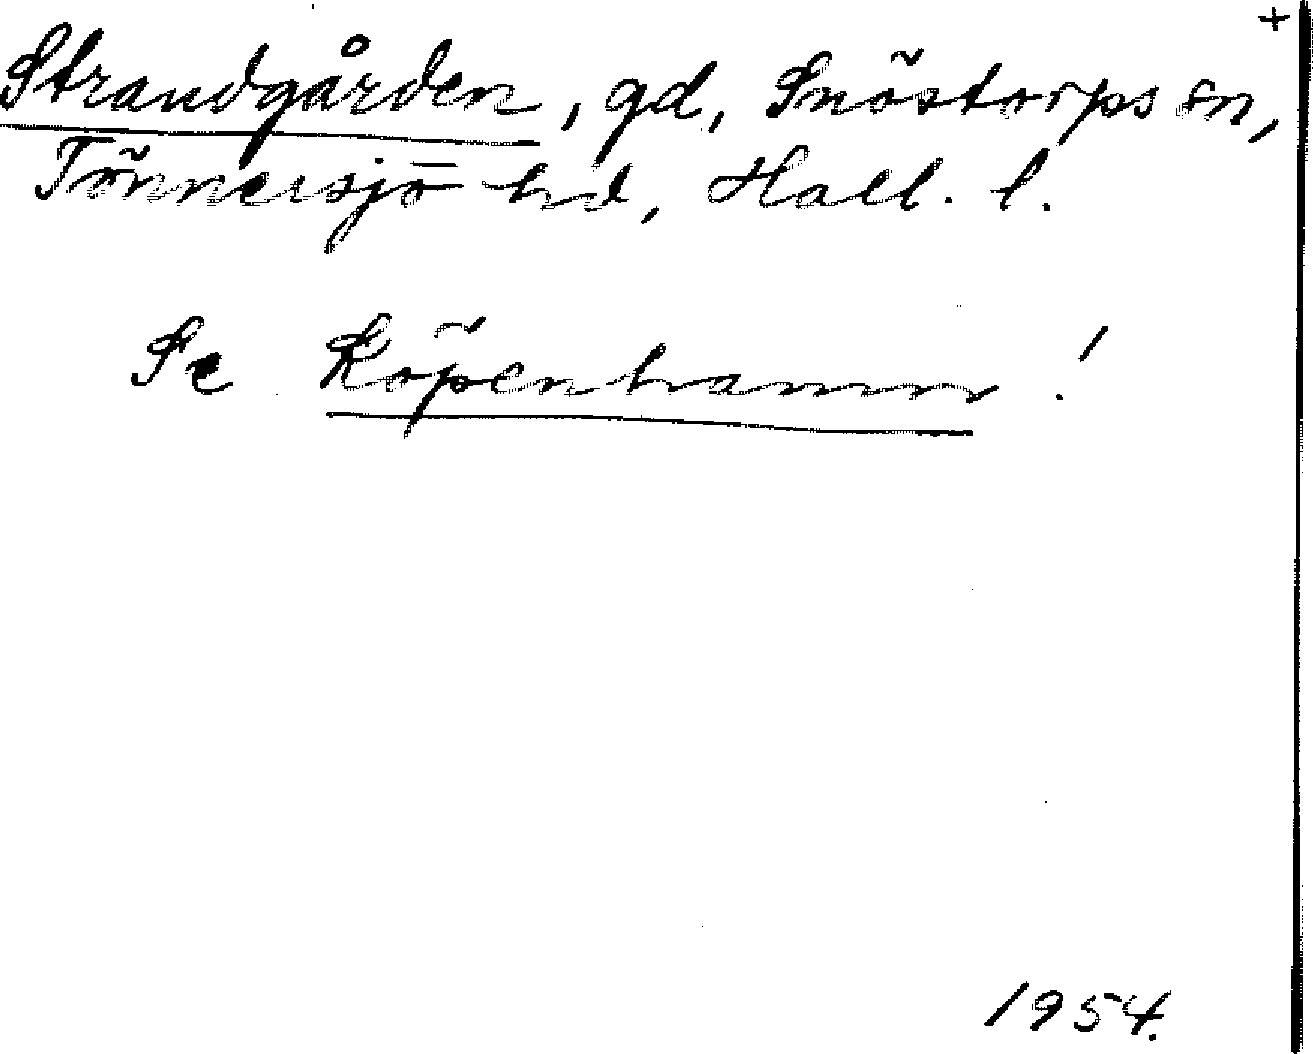 +
Strandgården, gd, Snöstorps sn,
Tönnersjö hd, Hall. l.
Se Köpenhamn!
1954.